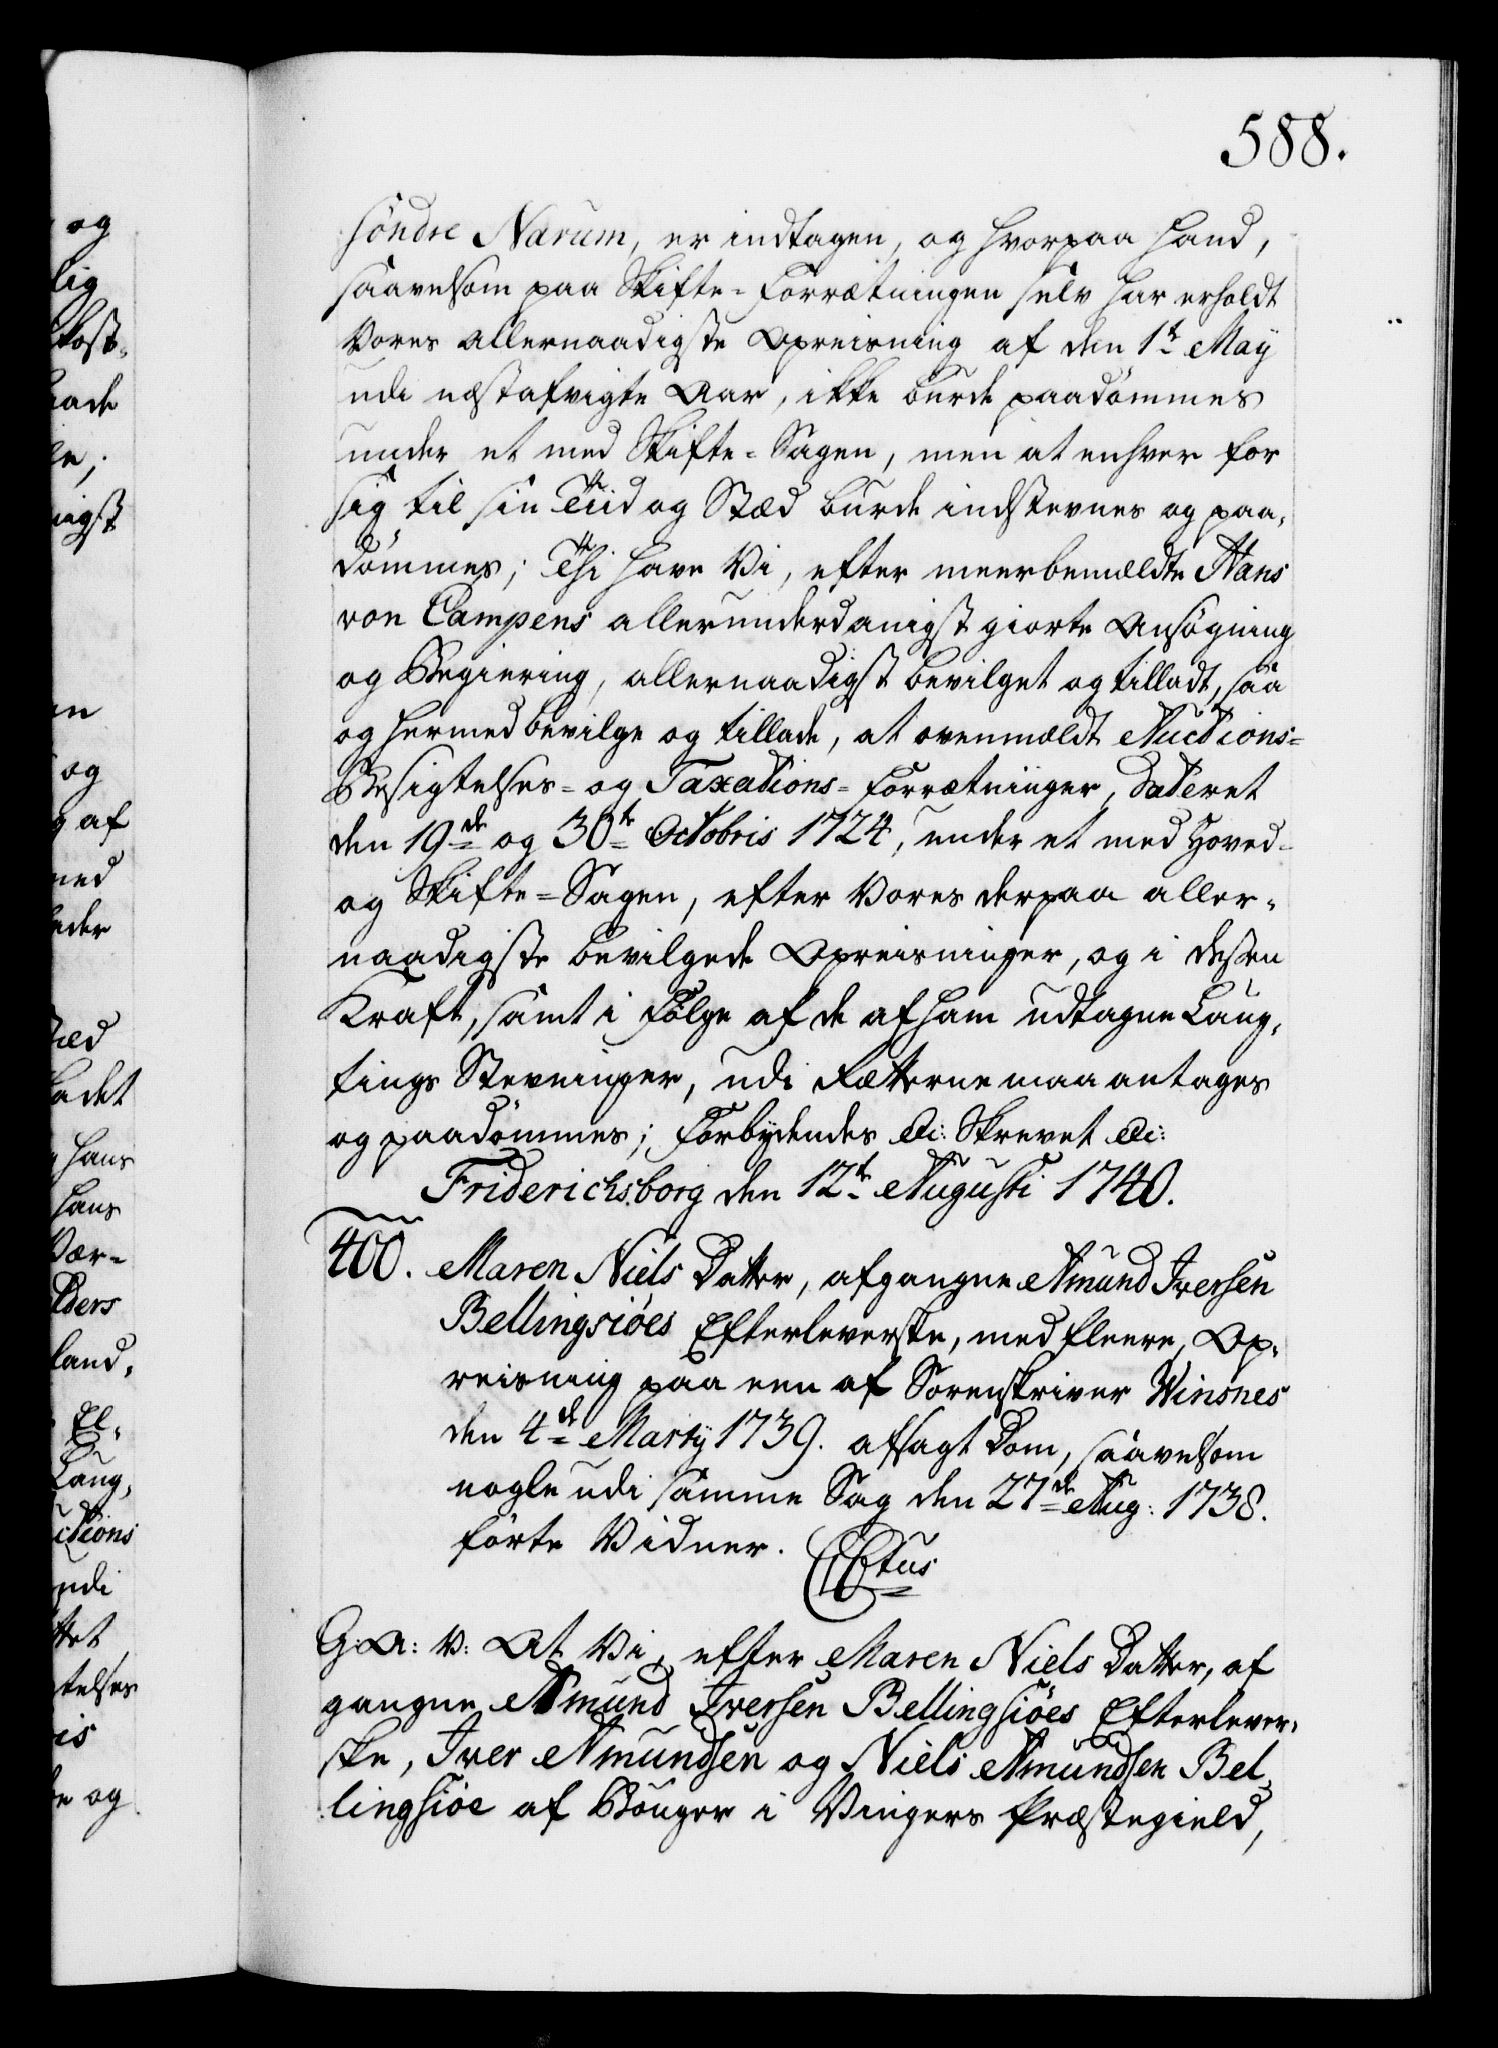 588.
Söndre Nærum, er indtagen, og hvorpaa hand,
saavelsom paa Skifte-Forrætningen selv har erholdt
Vores allernaadigste Opreisning af den 1te May
udi næstafvigte Aar, ikke burde paadömmes
under et med Skifte-Sagen, men at enhver for
sig til sin Tiid og Stæd burde indstevnes og paa-
dömmes; Thi have Vi, efter meerbemældte Hans
von Campens allerunderdanigst giorte Ansögning
og Begiering, allernaadigst bevilget og tilladt, saa
og hermed bevilge og tillade, at ovenmældt Auctions-
Besigtelses- og Taxations-Forrætninger, dateret
den 19de og 30te Octobris 1724, under et med Hoved-
og Skifte-Sagen, efter Vores derpaa aller-
naadigste bevilgede Opreisninger, og i dessen
Kraft, samt i Fölge af de af ham udtagne Laug-
tings Stevninger, udi Rætterne maa antages
og paadömmes; Forbydendes &c: Skrevet &c:
Friderichsborg den 12te Augusti 1740.
400. Maren Niels Datter, afgangne Amund Iversen
Bellingsiöes Efterleverske, med fleere, Op-
reisning paa een af Sorenskriver Winsnes
den 4de Marty 1739. afsagt Dom, saavelsom
nogle udi samme Sag den 27de Aug: 1738.
förte Vidner.
G: A: V: At Vi, efter Maren Niels Datter, af
gangne Amund Iversen Bellingsiöes Efterlever-
ske, Iver Amundsen og Niels Amundsen Bel-
lingsiöe af Bouger i Vingers Præstegield,
og
lig
og
af
hans
hans
Vær-
land,
Laug,
udi
og